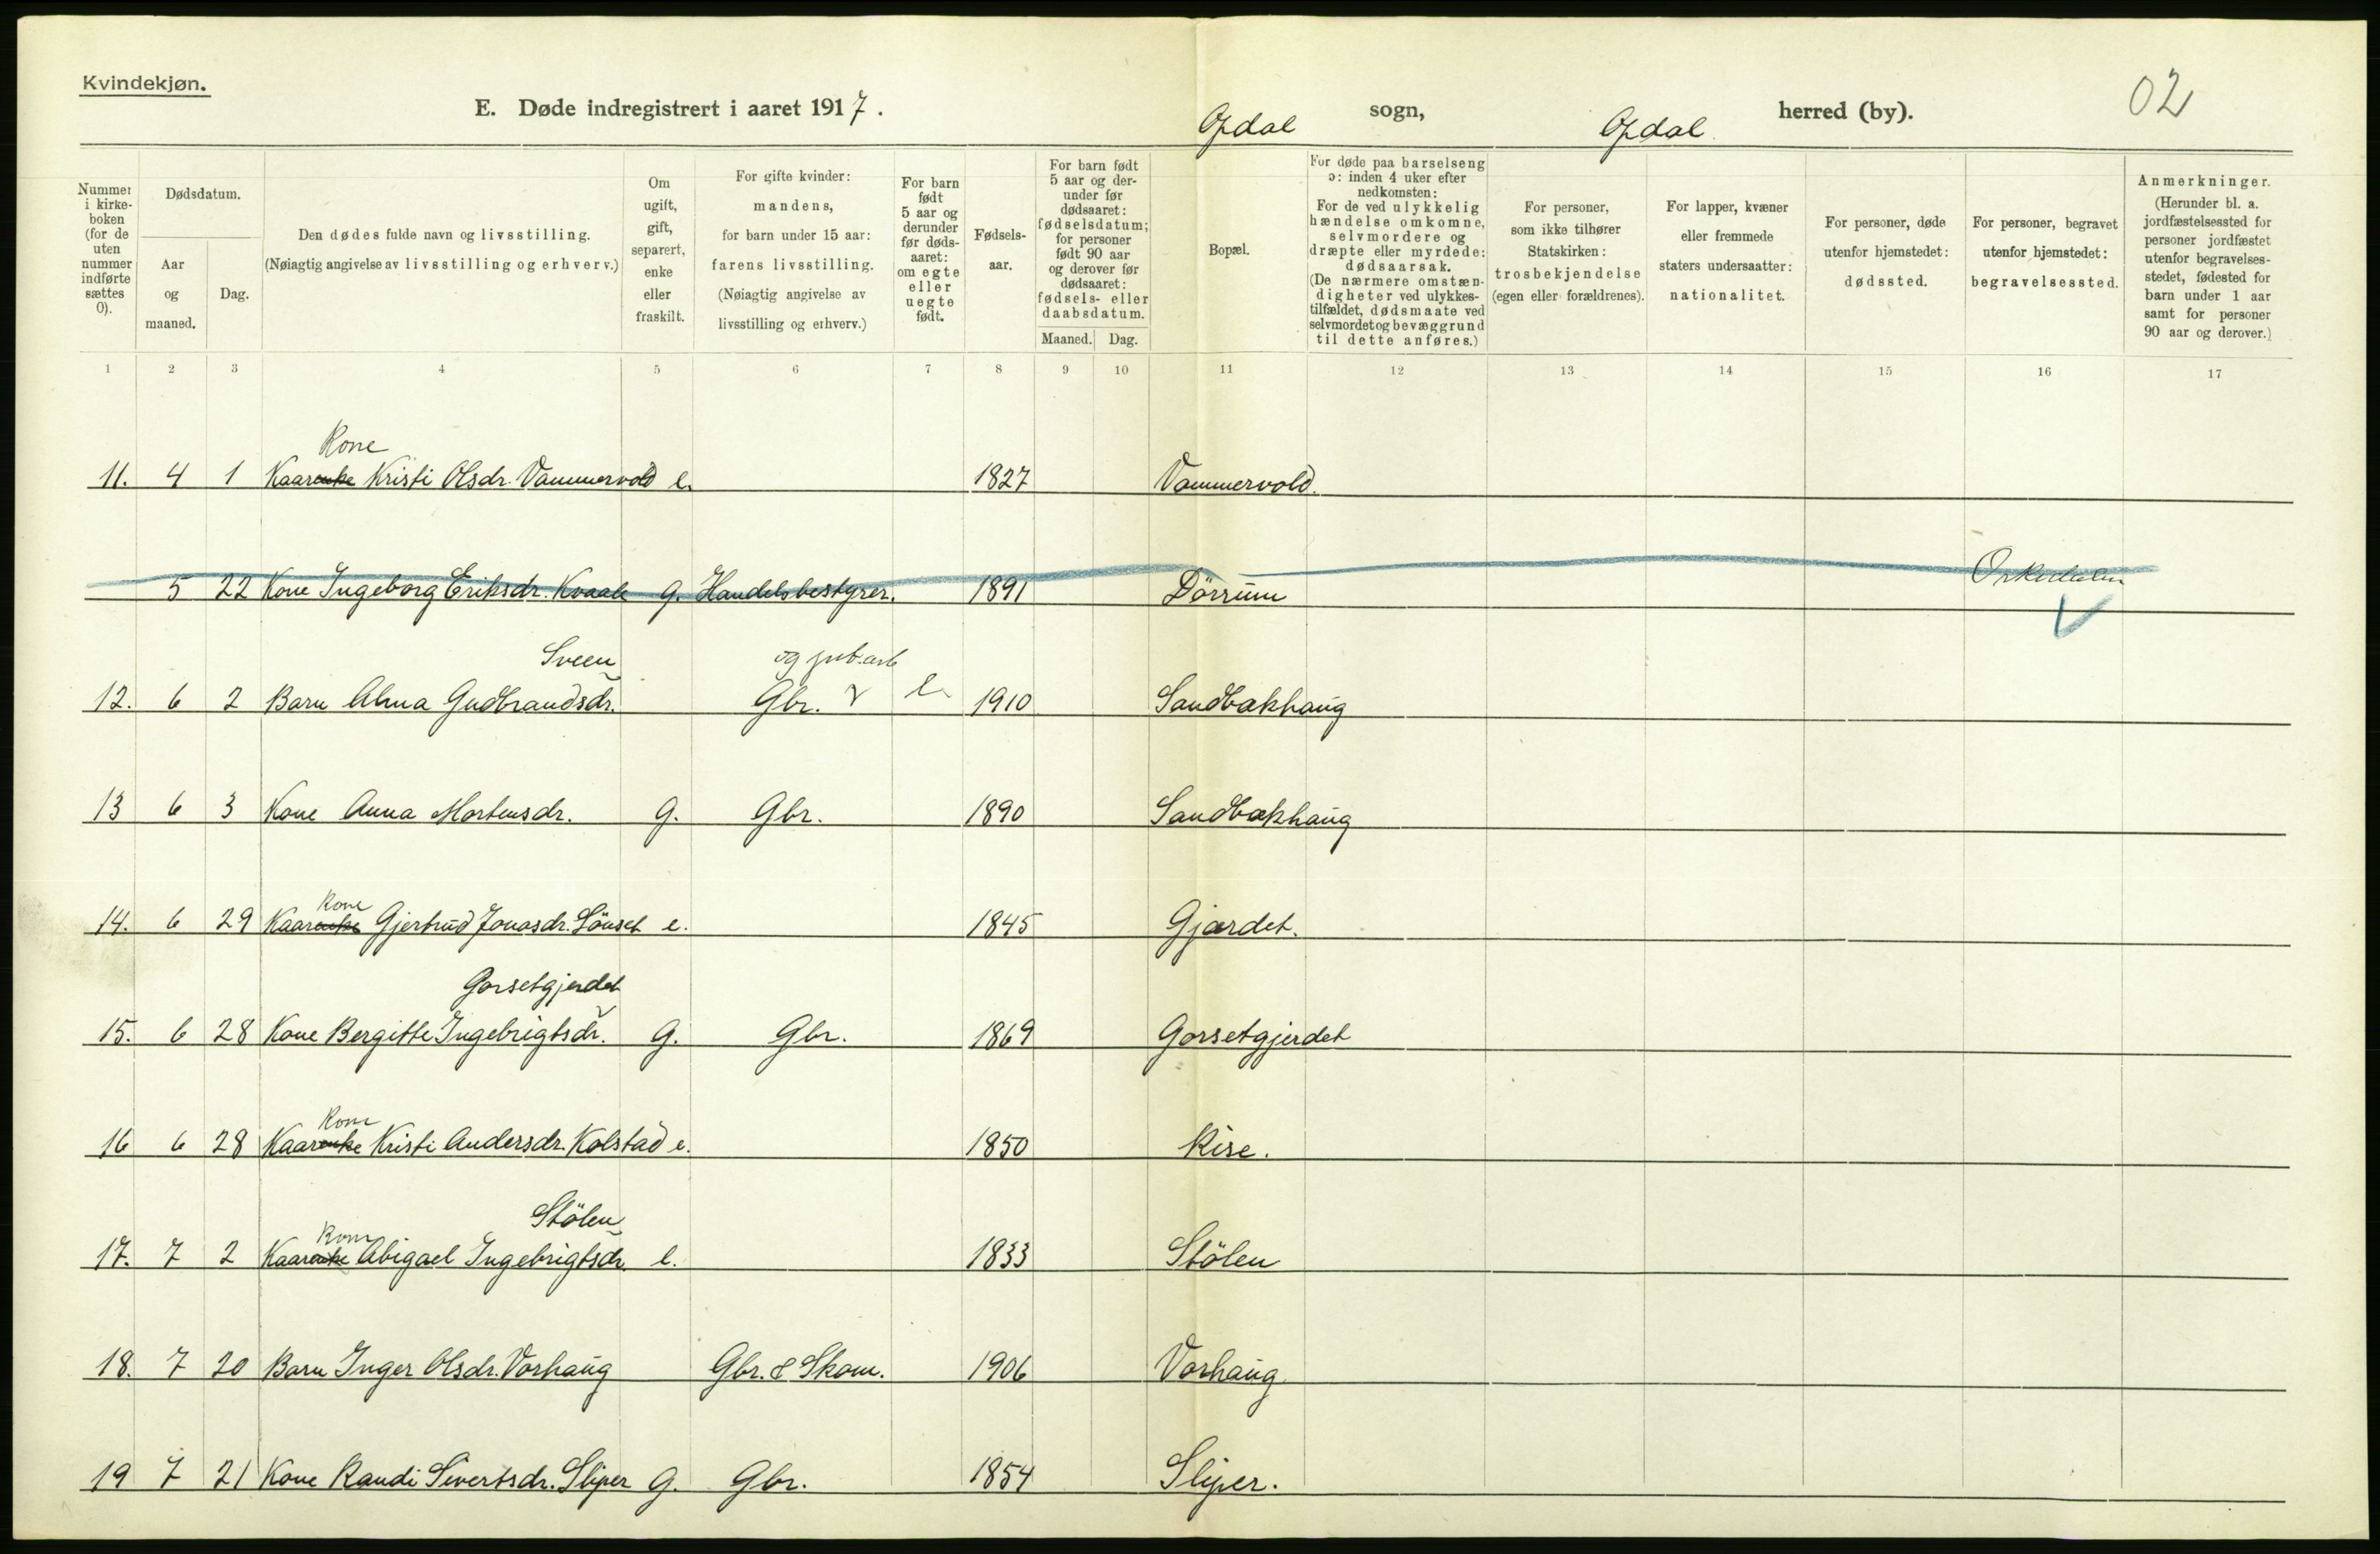 Kvindekjøn.
E. Døde indregistrert i aaret 1917. Opdal sogn, Opdal herred (by). 02
Nummer i kirke-boken (for de uten nummer indførte sættes 0).
Dødsdatum.
Aar og maaned.
Dag.
Den dødes fulde navn og livsstilling.
(Nøiagtig angivelse av livsstilling og erhverv.)
Om ugift, gift, separert, enke eller fraskilt.
For gifte kvinder: mandens, for barn under 15 aar: farens livsstilling. (Nøiagtig angivelse av livsstilling og erhverv.)
For barn født 5 aar og derunder før døds-aaret: om egte eller uegte født.
Fødsels-aar.
For barn født 5 aar og der-under før dødsaaret: fødselsdatum; for personer født 90 aar og derover før dødsaaret: fødsels- eller daabsdatum.
Maaned. Dag.
Bopæl.
For døde paa barselseng ɔ: inden 4 uker efter nedkomsten: For de ved ulykkelig hændelse omkomne, selvmordere og dræpte eller myrdede: dødsaarsak. (De nærmere omstæn-digheter ved ulykkes-tilfældet, dødsmaate ved selvmordet og bevæggrund til dette anføres.)
For personer, som ikke tilhører Statskirken: trosbekjendelse (egen eller forældrenes).
For lapper, kvæner eller fremmede staters undersaatter: nationalitet.
For personer, døde utenfor hjemstedet: dødssted.
For personer, begravet utenfor hjemstedet: begravelsessted.
Anmerkninger. (Herunder bl. a. jordfæstelsessted for personer jordfæstet utenfor begravelses-stedet, fødested for barn under 1 aar samt for personer 90 aar og derover.)
1 2 3 4 5 6 7 8 9 10 11 12 13 14 15 16 17
Kone
11. 4 1 Kaarenke Kristi Olsdr. Vammervold e. 1827 Vammervold.
5 22 Kone Ingeborg Eriksdr. Kvaale g. Handelsbestyrer. 1891 Dörrum Orkedalen
Sveen og jrb.arb
12. 6 2 Barn Alma Gudbrandsdr. Gbr. e. 1910 Sandbækhaug
13 6 3 Kone Anna Mortensdr. g. Gbr. 1890 Sandbækhaug
Kone
14. 6 29 Kaarenke Gjertrud Jonasdr. Lönset e. 1845 Gjærdet.
Gorsetgjerdet
15. 6 28 Kone Bergitte Ingebrigtsdr. g. Gbr. 1869 Gorsetgjerdet
Kone
16 6 28 Kaarenke Kristi Andersdr. Kolstad e. 1850 Rise.
Stölen
Kone
17. 7 2 Kaarenke Abigael Ingebrigtsdr. e. 1833 Stölen
18. 7 20 Barn Inger Olsdr. Vorhaug Gbr. & Skom. 1906 Vorhaug
19 7 21 Kone Randi Sivertsdr. Sliper g. Gbr. 1854 Sliper.